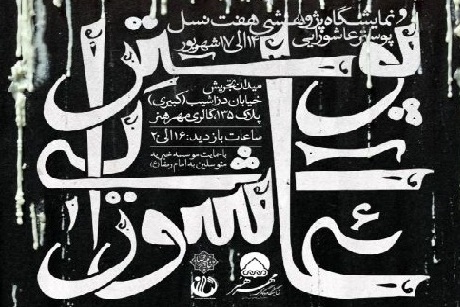 نمایشگاه پژوهشی هفت نسل
پوستر عاشورایی
۱۴ الی ۱۷ شهریور
میدان تجریش
خیابان دزاشیب (کبیری)
پلاک ۱۳۵، گالری مهر هنر
ساعات بازدید: ۱۶ الی ۲۰
با حمایت موسسه خیریه
متوسلین به امام رضا (ع)
پوستر
عاشورایی
مهر هنر